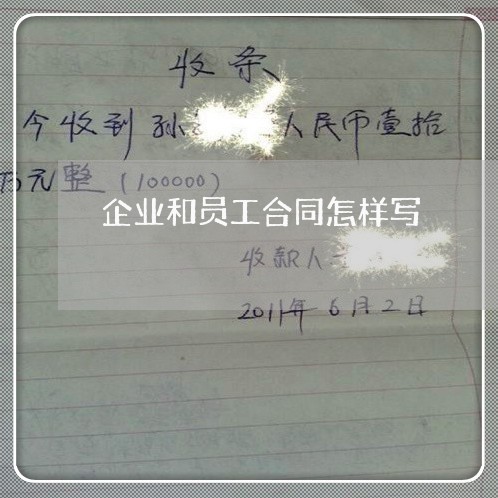 收条
今收到孙 人民币壹拾
万元整(100000)
企业和员工合同怎样写
收款人
2011年6月2日